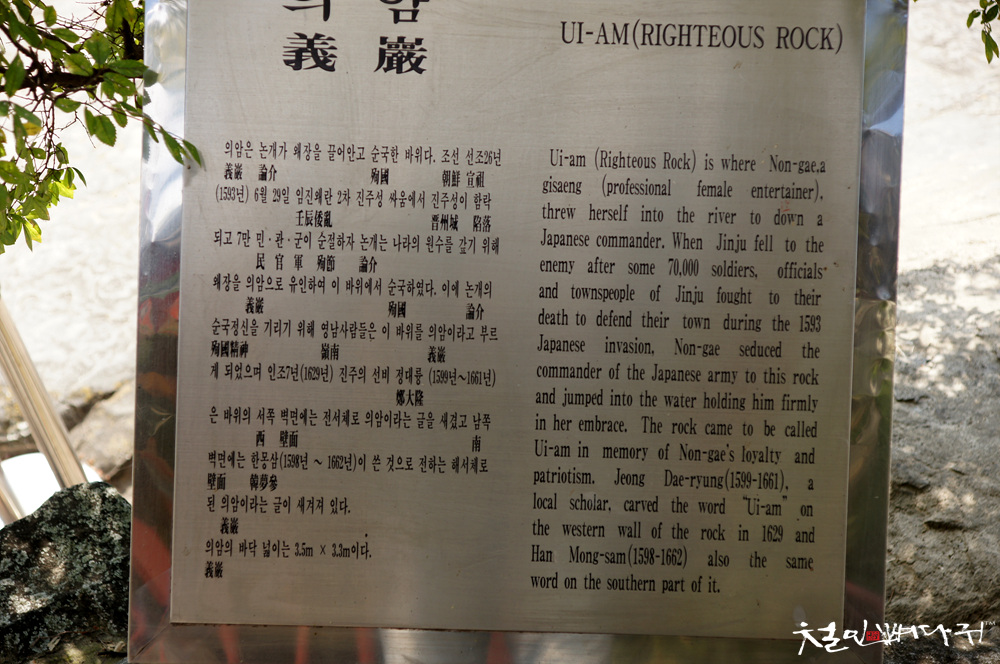 의암
義巖
UI-AM(RIGHTEOUS ROCK)
의암은 논개가 왜장을 끌어안고 순국한 바위다. 조선 선조26년
義巖 論介 殉國 朝鮮 宣祖
(1593년) 6월 29일 임진왜란 2차 진주성 싸움에서 진주성이 함락
壬辰倭亂 晋州城 陷落
되고 7만 민·관·군이 순절하자 논개는 나라의 원수를 갚기 위해
民 官 軍 殉節 論介
왜장을 의암으로 유인하여 이 바위에서 순국하였다. 이에 논개의
義巖 殉國 論介
순국정신을 기리기 위해 영남사람들은 이 바위를 의암이라고 부르
殉國精神 嶺南 義巖
게 되었으며 인조7년(1629년) 진주의 선비 정대륭 (1599년~1661년)
鄭大隆
은 바위의 서쪽 벽면에는 전서체로 의암이라는 글을 새겼고 남쪽
西 壁面 南
벽면에는 한몽삼(1598년 ~ 1662년)이 쓴 것으로 전하는 해서체로
壁面 韓夢參
된 의암이라는 글이 새겨져 있다.
義巖
의암의 바닥 넓이는 3.5m × 3.3m이다.
義巖
Ui-am (Righteous Rock) is where Non-gae,a
gisaeng (professional female entertainer),
threw herself into the river to down a
Japanese commander. When Jinju fell to the
enemy after some 70,000 soldiers, officials
and townspeople of Jinju fought to their
death to defend their town during the 1593
Japanese invasion, Non-gae seduced the
commander of the Japanese army to this rock
and jumped into the water holding him firmly
in her embrace. The rock came to be called
Ui-am in memory of Non-gae's loyalty and
patriotism. Jeong Dae-ryung(1599-1661), a
local scholar, carved the word "Ui-am" on
the western wall of the rock in 1629 and
Han Mong-sam(1598-1662) also the same
word on the southern part of it.